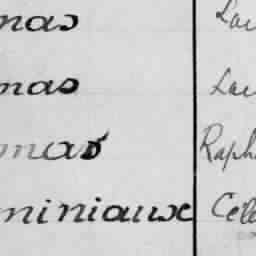 mas Lau
mas Lau
mas Raph
miniause Cele